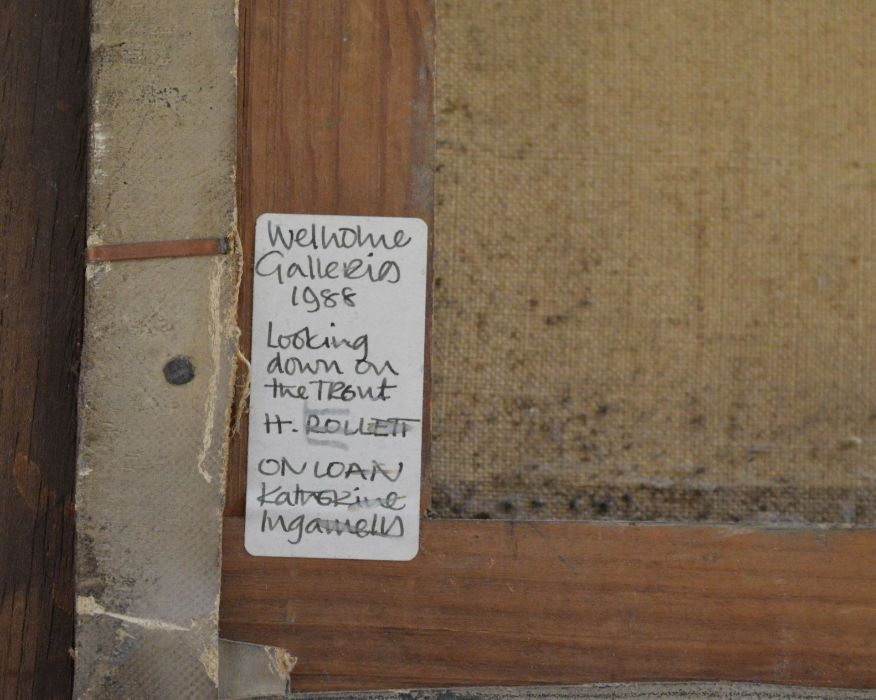 Welholme
Galleries
1988
Looking
down on
the TRent
H. ROLLETT
ON LOAN
Katherine
Ingamells